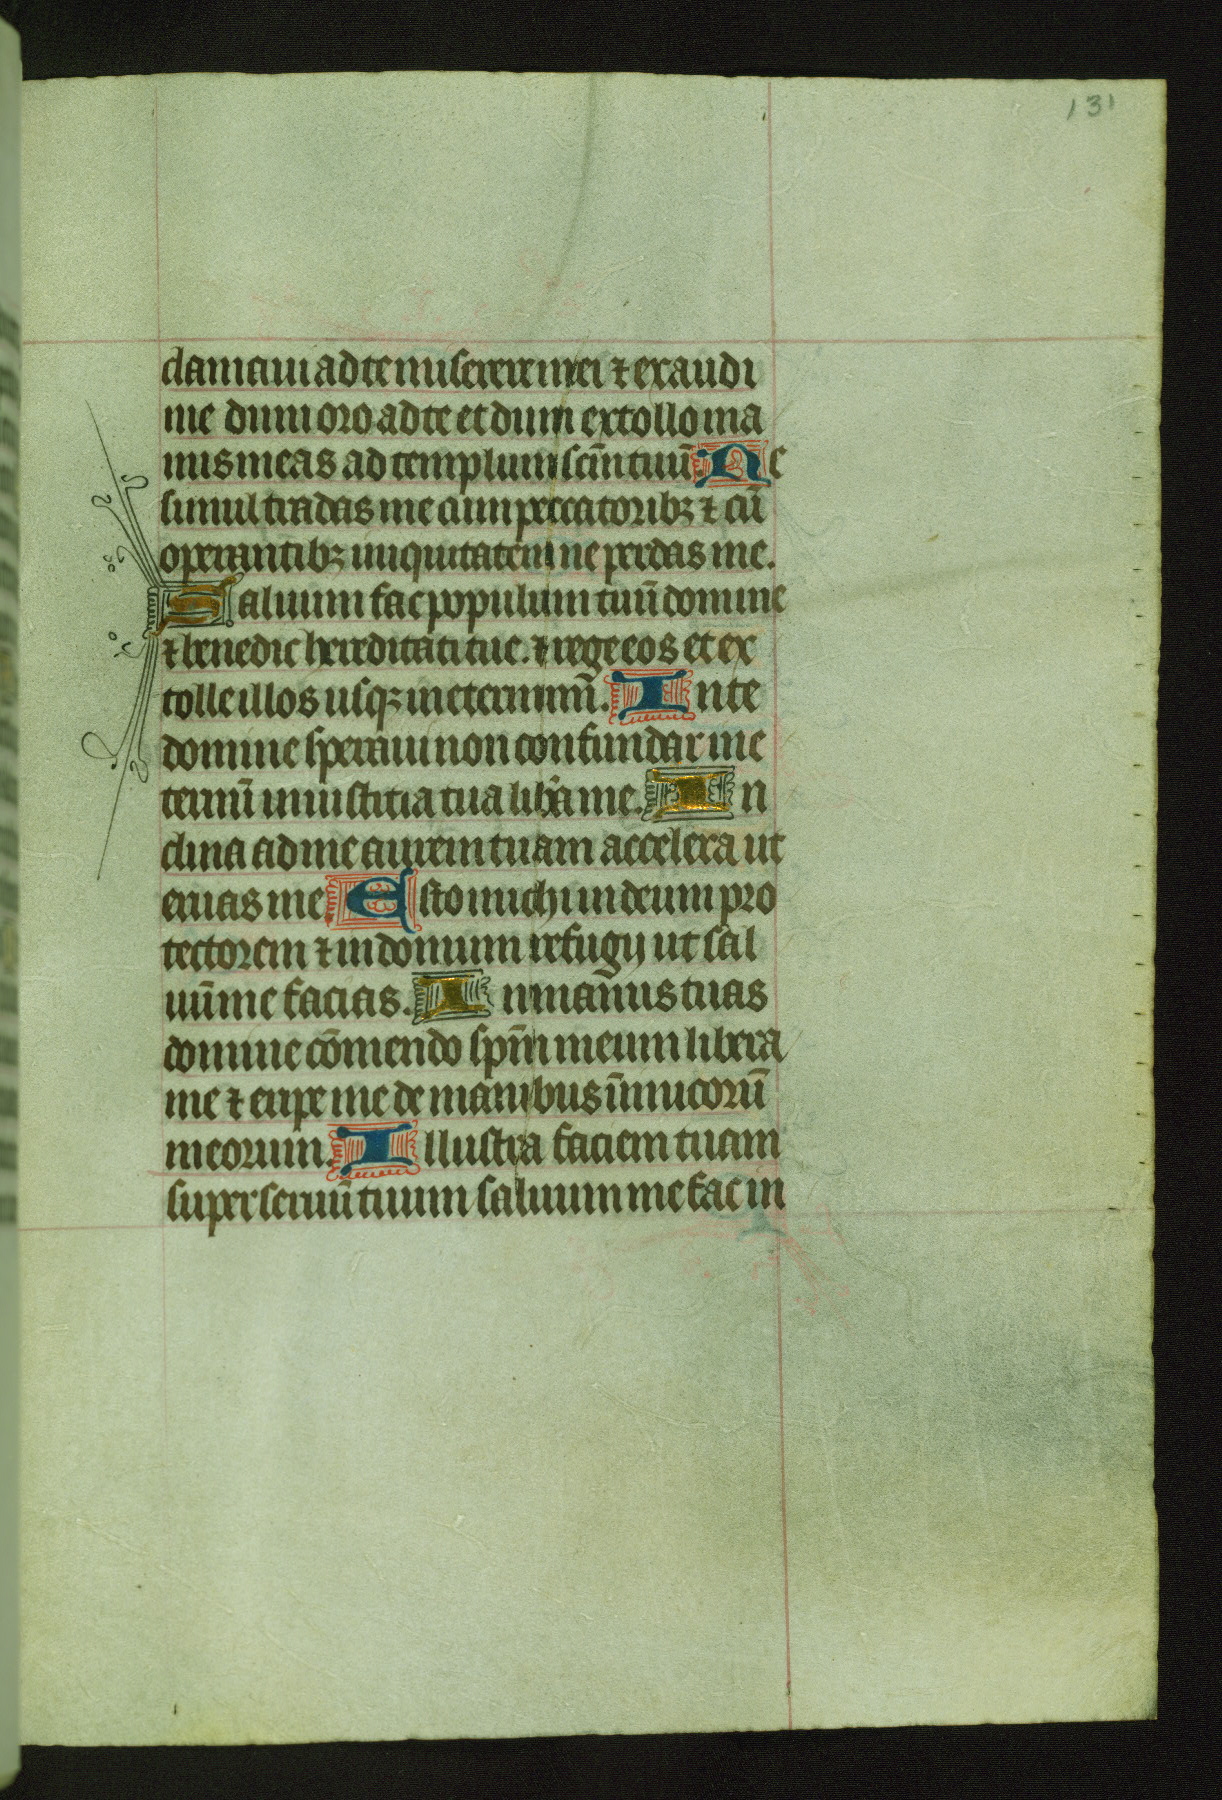 131
clamaui ad te miserere mei ⁊ exaudi
me dum oro ad te et dum extollo ma
nus meas ad templum scm̄ tuū. Ne
simul tradas me cum peccatoribꝫ ⁊ cū
operantibꝫ iniquitatem ne perdas me.
Saluum fac populum tuū domine
⁊ benedic hereditati tue. ⁊ rege eos et ex
tolle illos usqꝫ in eternum̄. In te
domine speraui non confundar in e
ternū in iusticia tua liba me. In
clina ad me aurem tuam accelera ut
eruas me Esto michi in deum pro
tectorem ⁊ in domum refugij ut sal
uū me facias. In manus tuas
domine cōmendo spm̄ meum libera
me ⁊ eripe me de manibus inimicorū
meorum. Illustra faciem tuam
super seruū tuum saluum me fac in